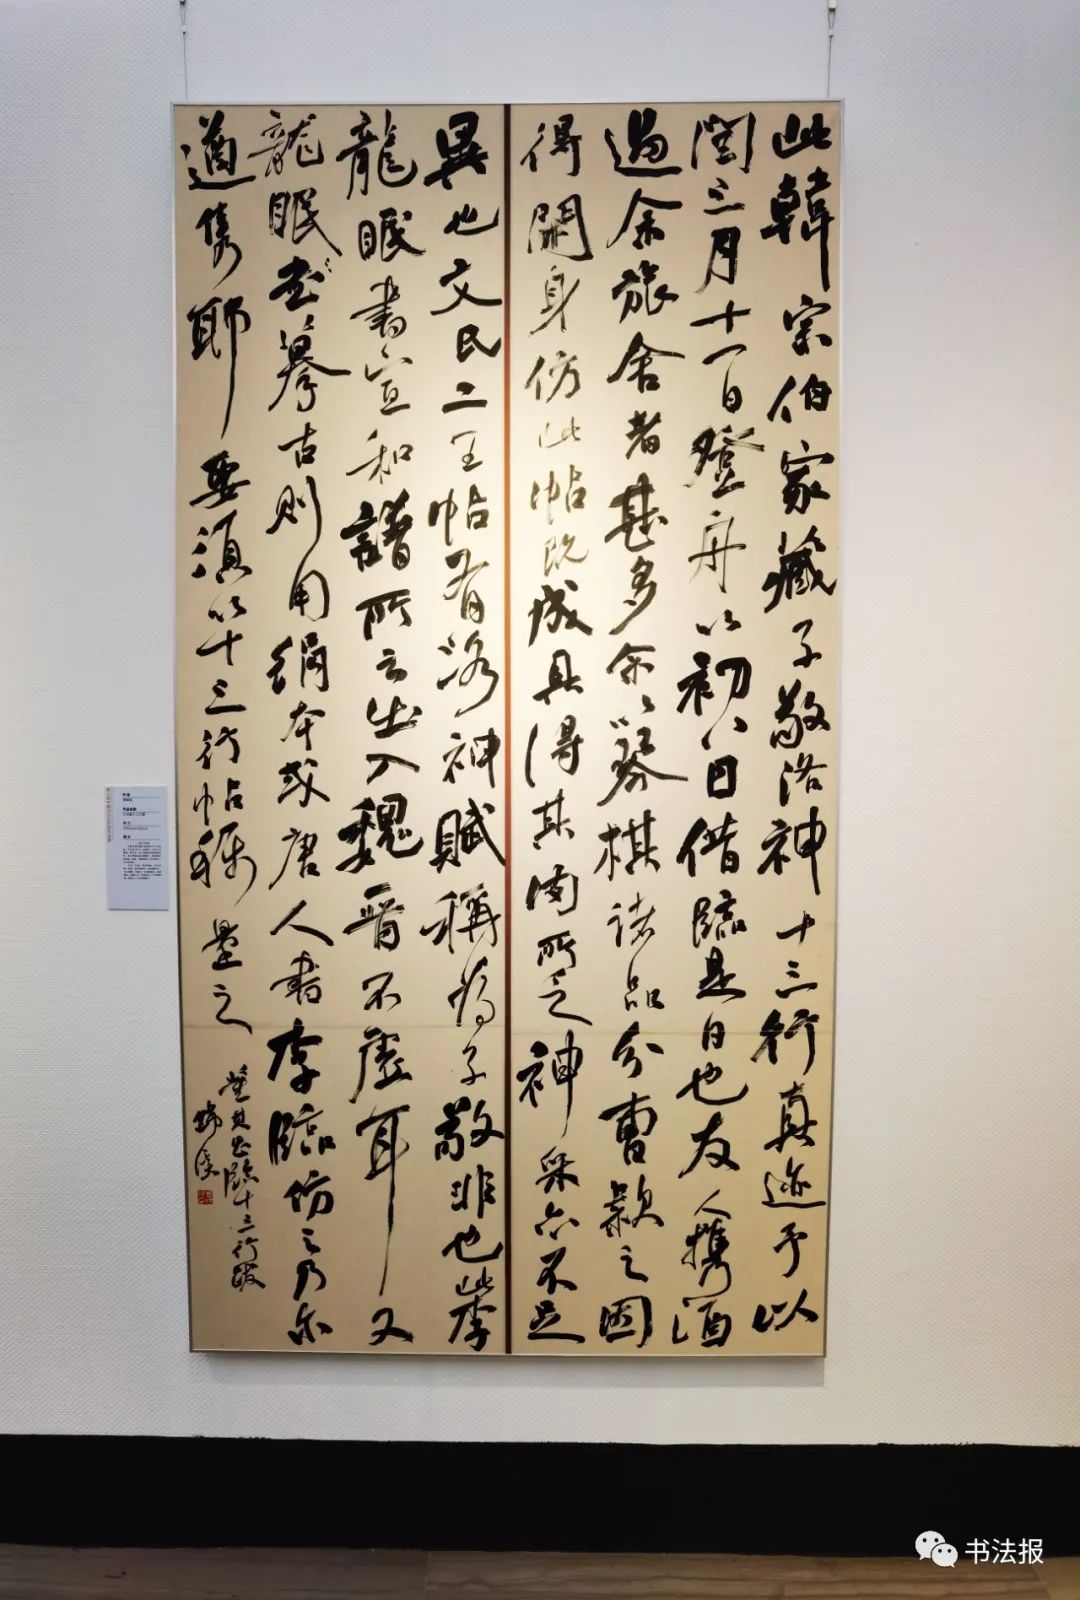 此韓宗伯家藏子敬洛神十三行真迹予以
閏三月十一日登舟以初八日借臨是日也友人攜酒
過余旅舍者甚多余以琴棋諸品分曹款之因
得閒身仿此帖既成具得其肉所乏神采亦不足
異也文氏二王帖有洛神賦稱為子敬非也此李
龍眠書宣和譜所云出入魏晉不虛耳又
龍眠書摹古則用絹本或唐人書李臨仿之乃爾
遒雋耶 要須以十三行帖稱量之
董其昌臨十三行跋
书法报